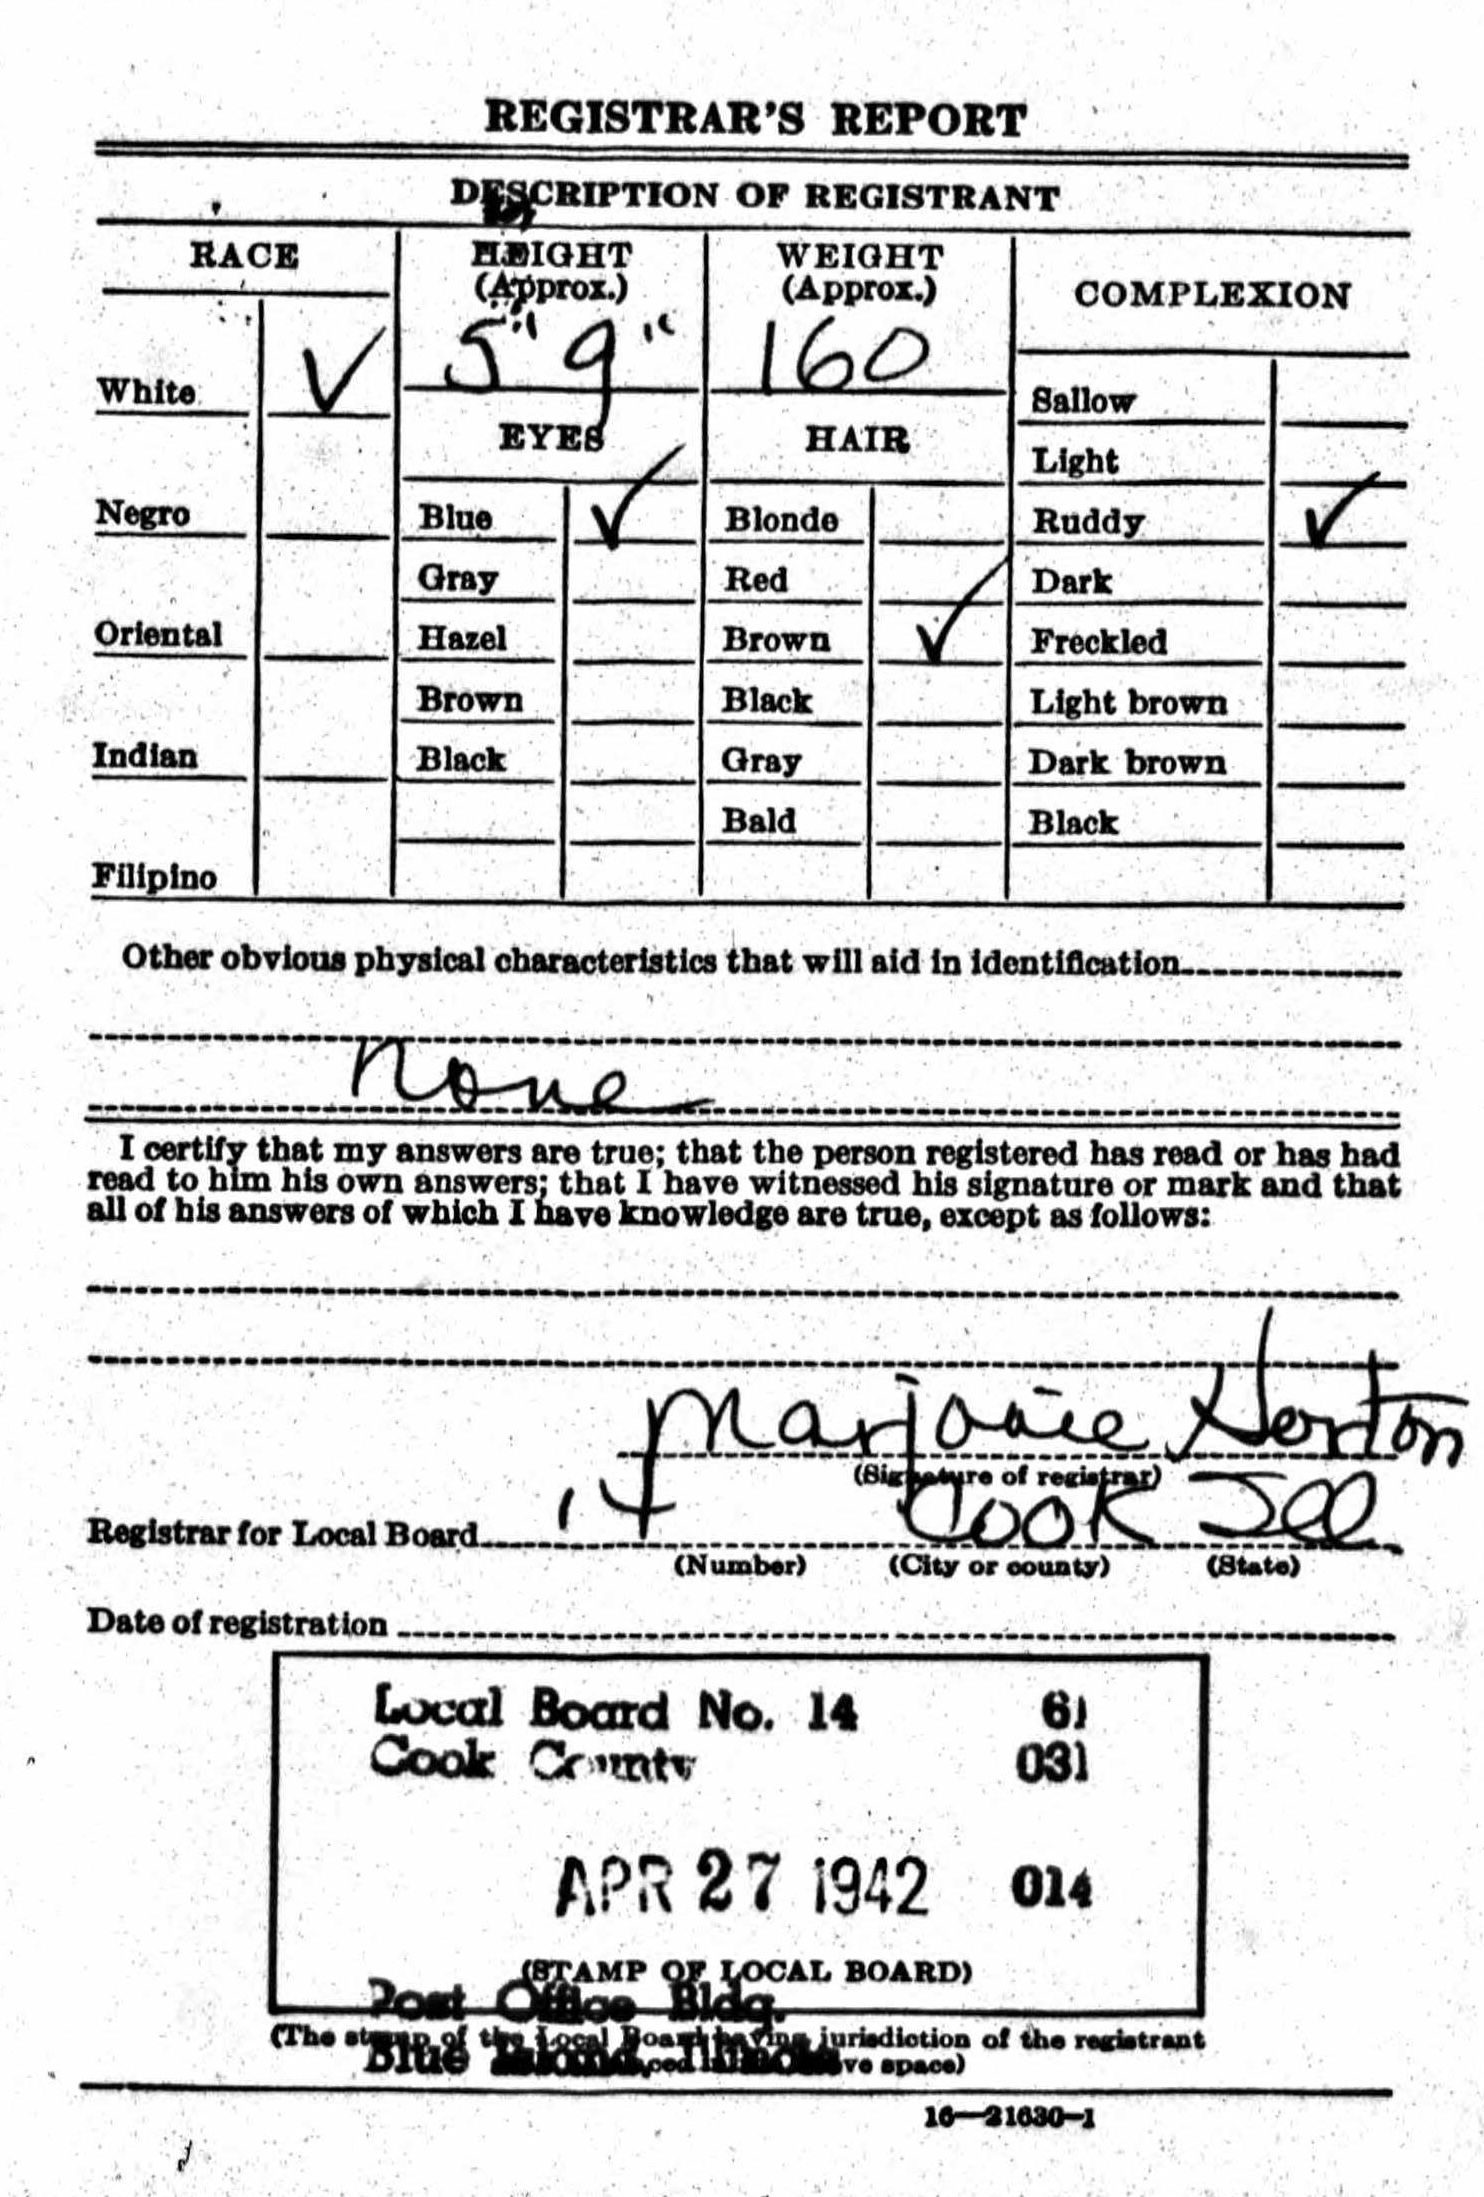 REGISTRAR'S REPORT
DESCRIPTION OF REGISTRANT
RACE
HEIGHT
(Approx.)
WEIGHT
(Approx.)
COMPLEXION
5" 9"
160
White ✓
Sallow
EYES
HAIR
Light
Negro
Blue ✓
Blonde
Ruddy ✓
Gray
Red
Dark
Oriental
Hazel
Brown ✓
Freckled
Brown
Black
Light brown
Indian
Black
Gray
Dark brown
Bald
Black
Filipino
Other obvious physical characteristics that will aid in identification
None
I certify that my answers are true; that the person registered has read or has had
read to him his own answers; that I have witnessed his signature or mark and that
all of his answers of which I have knowledge are true, except as follows:
Marjorie Horton
(Signature of registrar)
Registrar for Local Board 14 Cook Ill
(Number) (City or county) (State)
Date of registration
Local Board No. 14 61
Cook County 031
APR 27 1942 014
(STAMP OF LOCAL BOARD)
Post Office Bldg.
(The stamp of the Local Board having jurisdiction of the registrant
Blue Island, Illinois
ve space)
16—21630-1